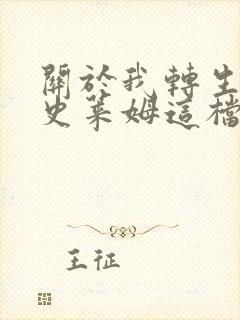 關於我轉生
史萊姆這檔
王征